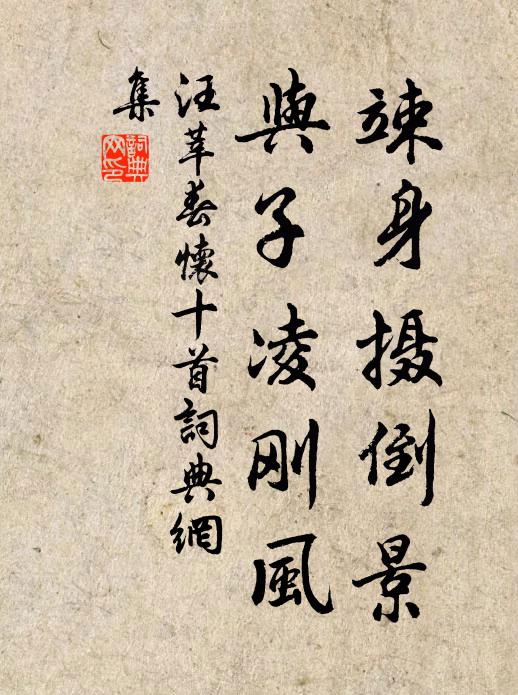 竦身摄倒景
與子凌刚風
汪莘春懷十首詞典網
集
詞典
网印